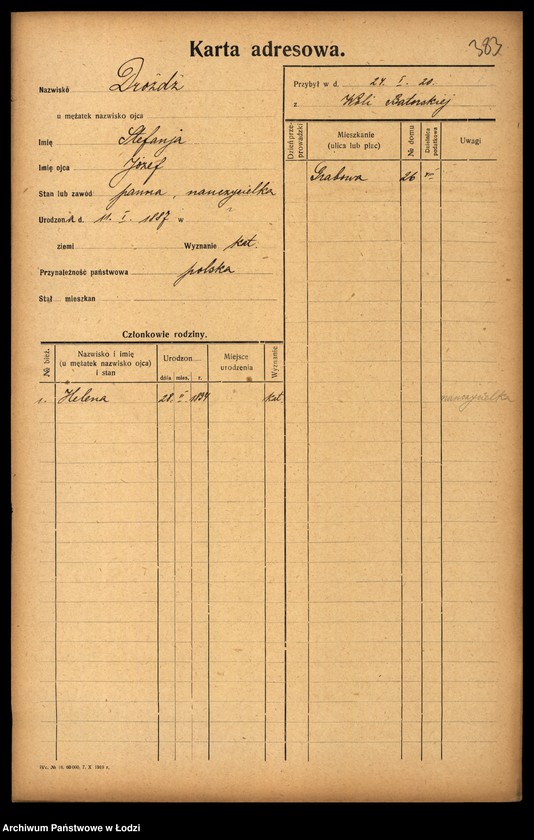 383
Karta adresowa.
Nazwisko Drożdż
u mężatek nazwisko ojca
Imię Stefanja
Imię ojca Józef
Stan lub zawód panna, nauczycielka
Urodzona d. 11. I. 1887 w
ziemi Wyznanie kat.
Przynależność państwowa polska
Stał mieszkan
Przybył w d. 24. I. 20.
z Woli Batorskiej
Dzień przeprowadzki
Mieszkanie
(ulica lub plac)
№ domu
Dzielnica podatkowa
Uwagi
Grabowa 26
nauczycielka
Członkowie rodziny.
№ bież.
Nazwisko i imię
(u mężatek nazwisko ojca)
i stan
Urodzon
dnia mies. r.
Miejsce
urodzenia
Wyznanie
1. Helena 28. 1894 kat.
Archiwum Państwowe w Łodzi